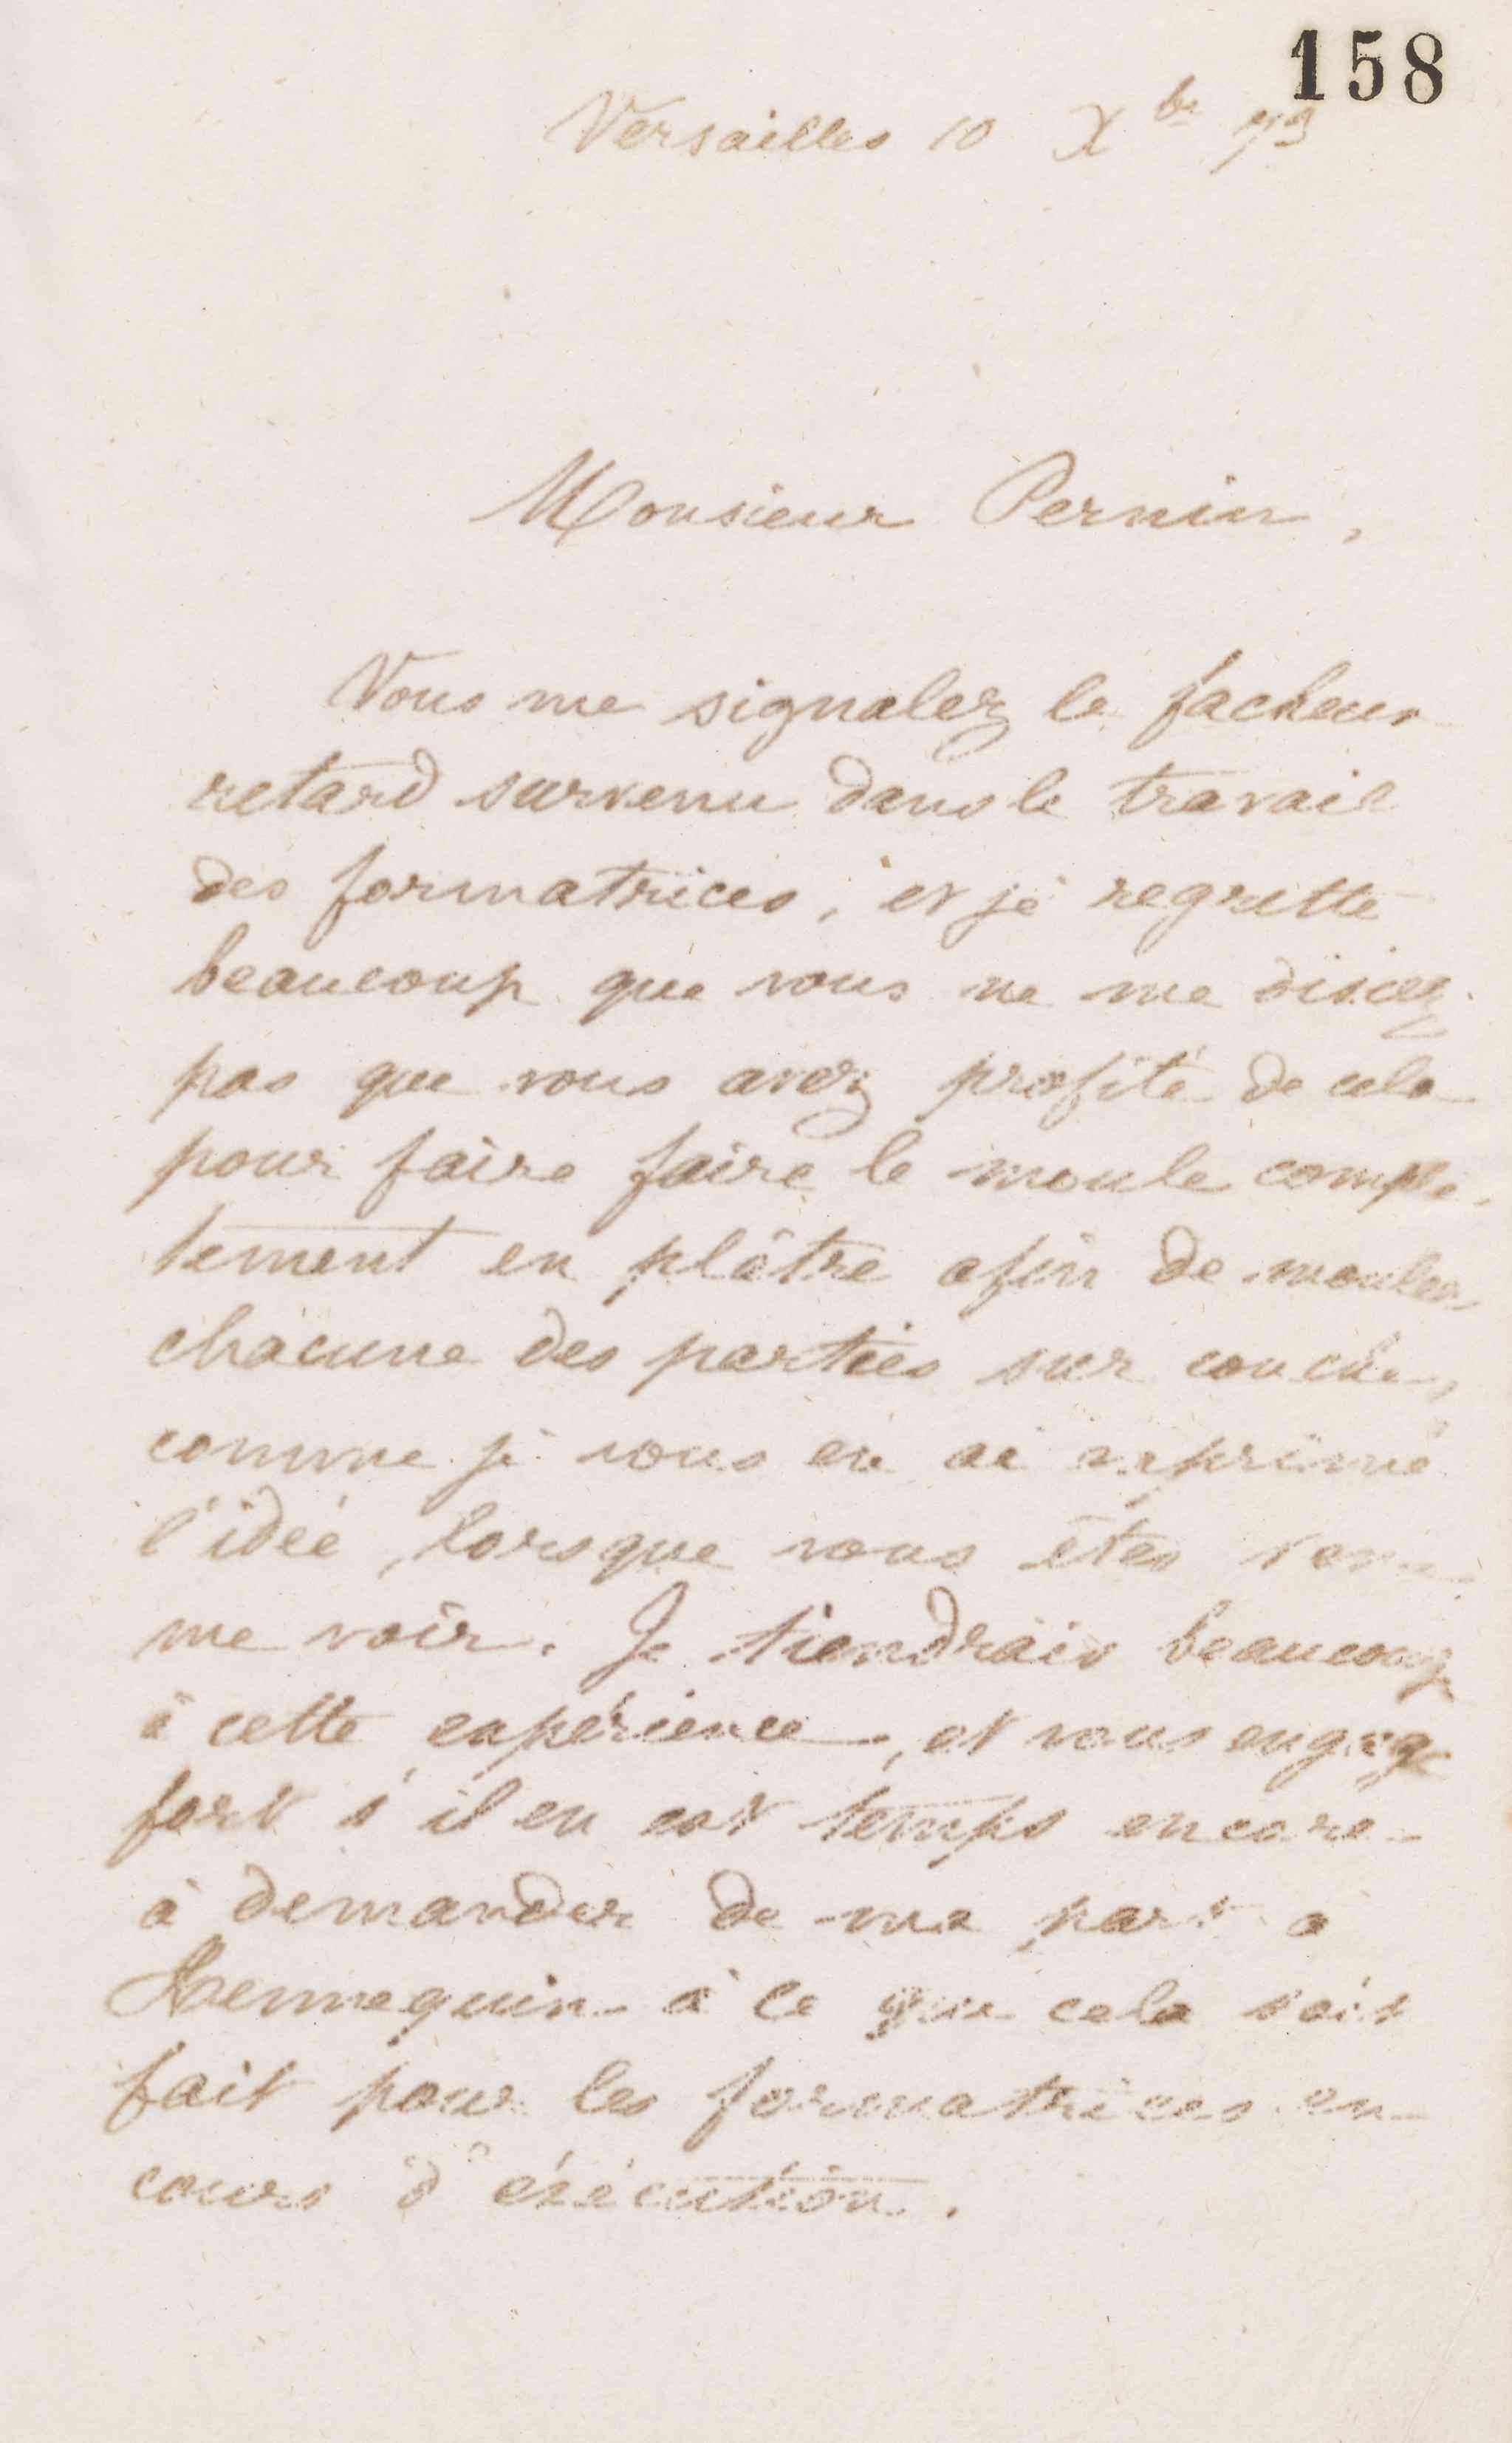 158
Versailles 10 Xbre 79
Monsieur Pernin,
Vous me signalez le facheux
retard survenu dans le travail
des formatrices, et je regrette
beaucoup que vous ne me disiez
pas que vous avez profité de cela
pour faire faire le moule complè-
tement en plâtre afin de mouler
chacune des parties sur couche,
comme je vous en ai exprimé
l'idée, lorsque vous êtes venu
me voir. Je tiendrais beaucoup
à cette expérience, et vous engage
fort s'il en est temps encore
à demander de ma part a
Hennequin à ce que cela soit
fait pour les formatrices en
cours d'éxécution.